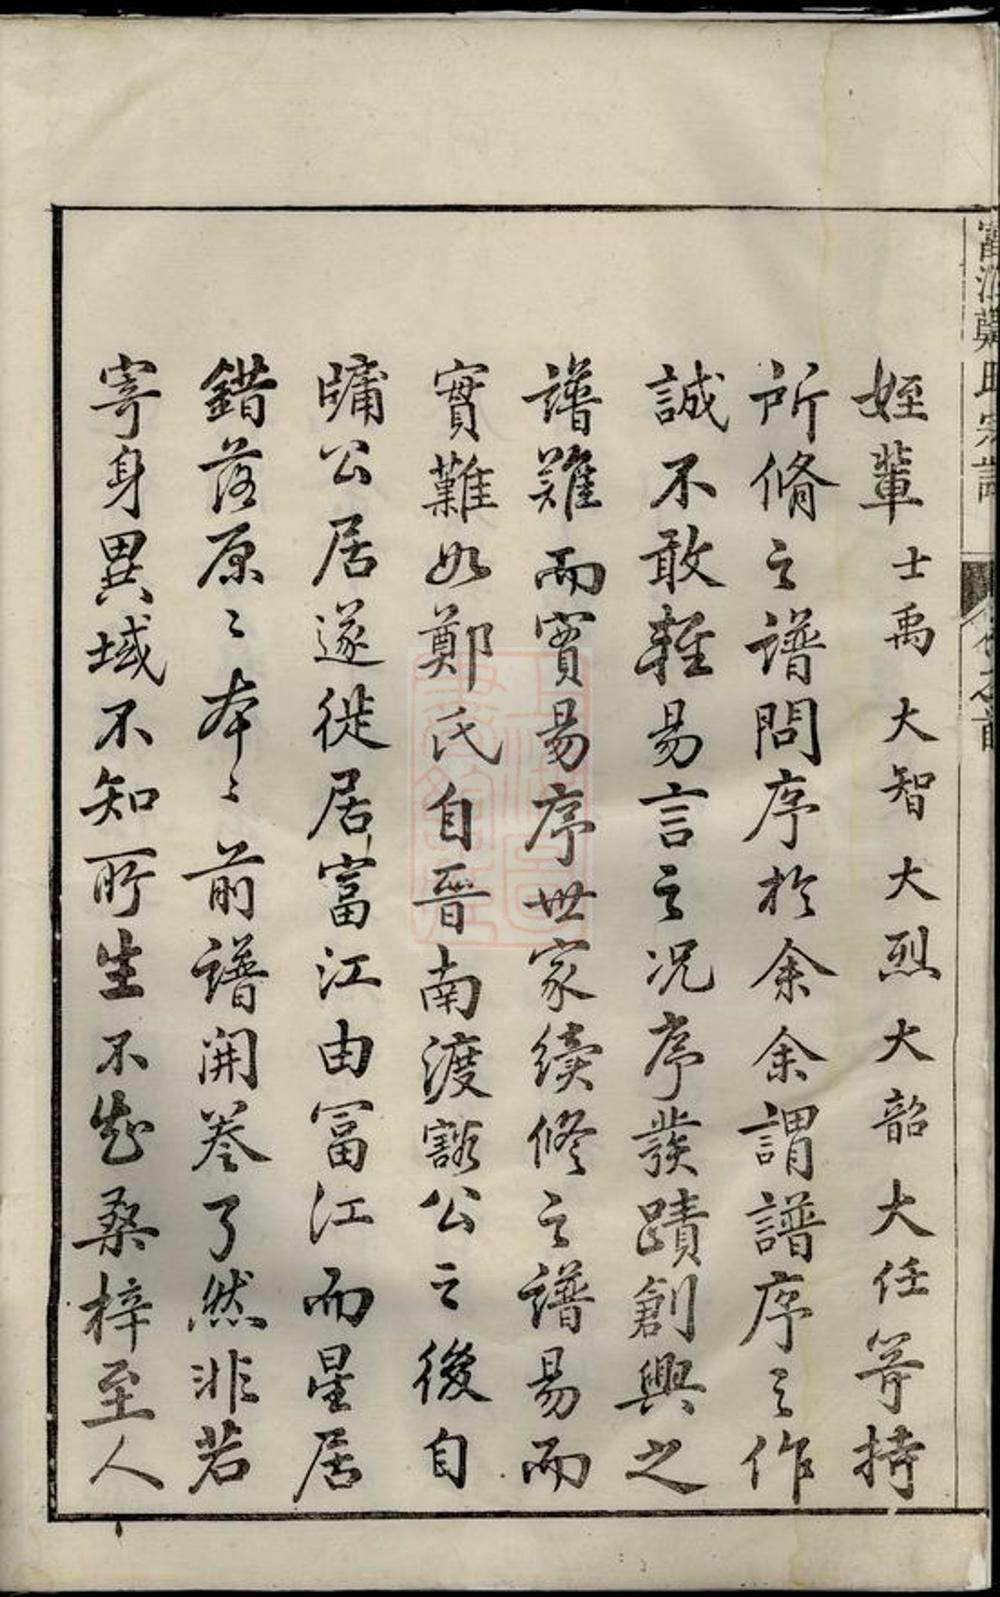 富江鄭氏宗譜
卷之首
姪輩士禹大智大烈大韶大任等持
所脩之譜問序於余余謂譜序之作
誠不敢輕易言之况序發蹟創興之
譜難而實易序世家續修之譜易而
實難如鄭氏自晉南渡豁公之後自
牗公居遂徙居富江由冨江而星居
錯落原〻夲〻前譜開卷了然非若
寄身異域不知所生不恋桑梓至人